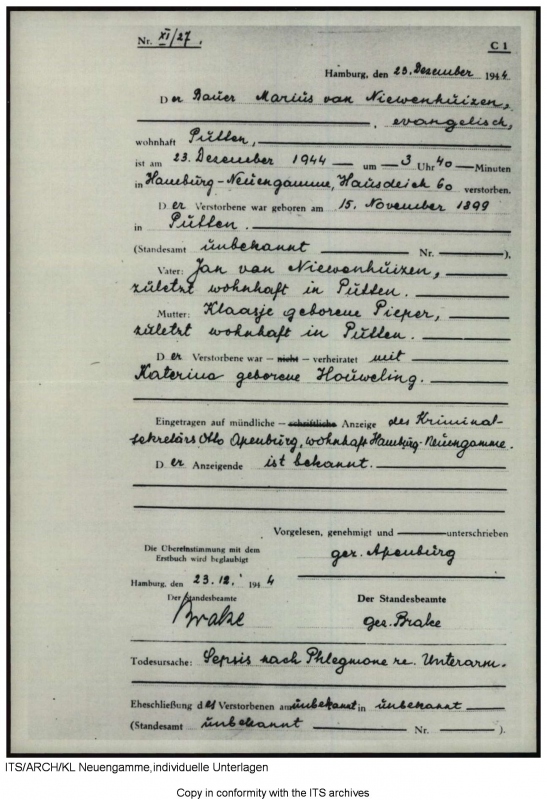 Nr. XI/27.
C 1
Hamburg, den 23. Dezember 1944
Der Bauer Marius van Niewenhuizen,
, evangelisch,
wohnhaft Putten,
ist am 23. Dezember 1944 — um — 3 Uhr 40 — Minuten
in Hamburg-Neuengamme, Hausdeich 60 verstorben.
Der Verstorbene war geboren am 15. November 1899
in Putten.
(Standesamt unbekannt Nr. — ),
Vater: Jan van Niewenhuizen,
zuletzt wohnhaft in Putten.
Mutter: Klaasje geborene Pieper,
zuletzt wohnhaft in Putten.
Der Verstorbene war — nicht — verheiratet mit
Katerina geborene Houweling.
Eingetragen auf mündliche — schriftliche Anzeige des Kriminal-
sekretärs Otto Apenburg, wohnhaft Hamburg-Neuengamme.
Der Anzeigende ist bekannt.
Vorgelesen, genehmigt und — unterschrieben
gez. Apenburg
Die Übereinstimmung mit dem
Erstbuch wird beglaubigt
Hamburg, den 23.12. 1944
Der Standesbeamte
Brake
Der Standesbeamte
gez. Brake
Todesursache: Sepsis nach Phlegmone re. Unterarm.
Eheschließung des Verstorbenen am unbekannt in unbekannt
(Standesamt unbekannt Nr. — ).
ITS/ARCH/KL Neuengamme, individuelle Unterlagen
Copy in conformity with the ITS archives